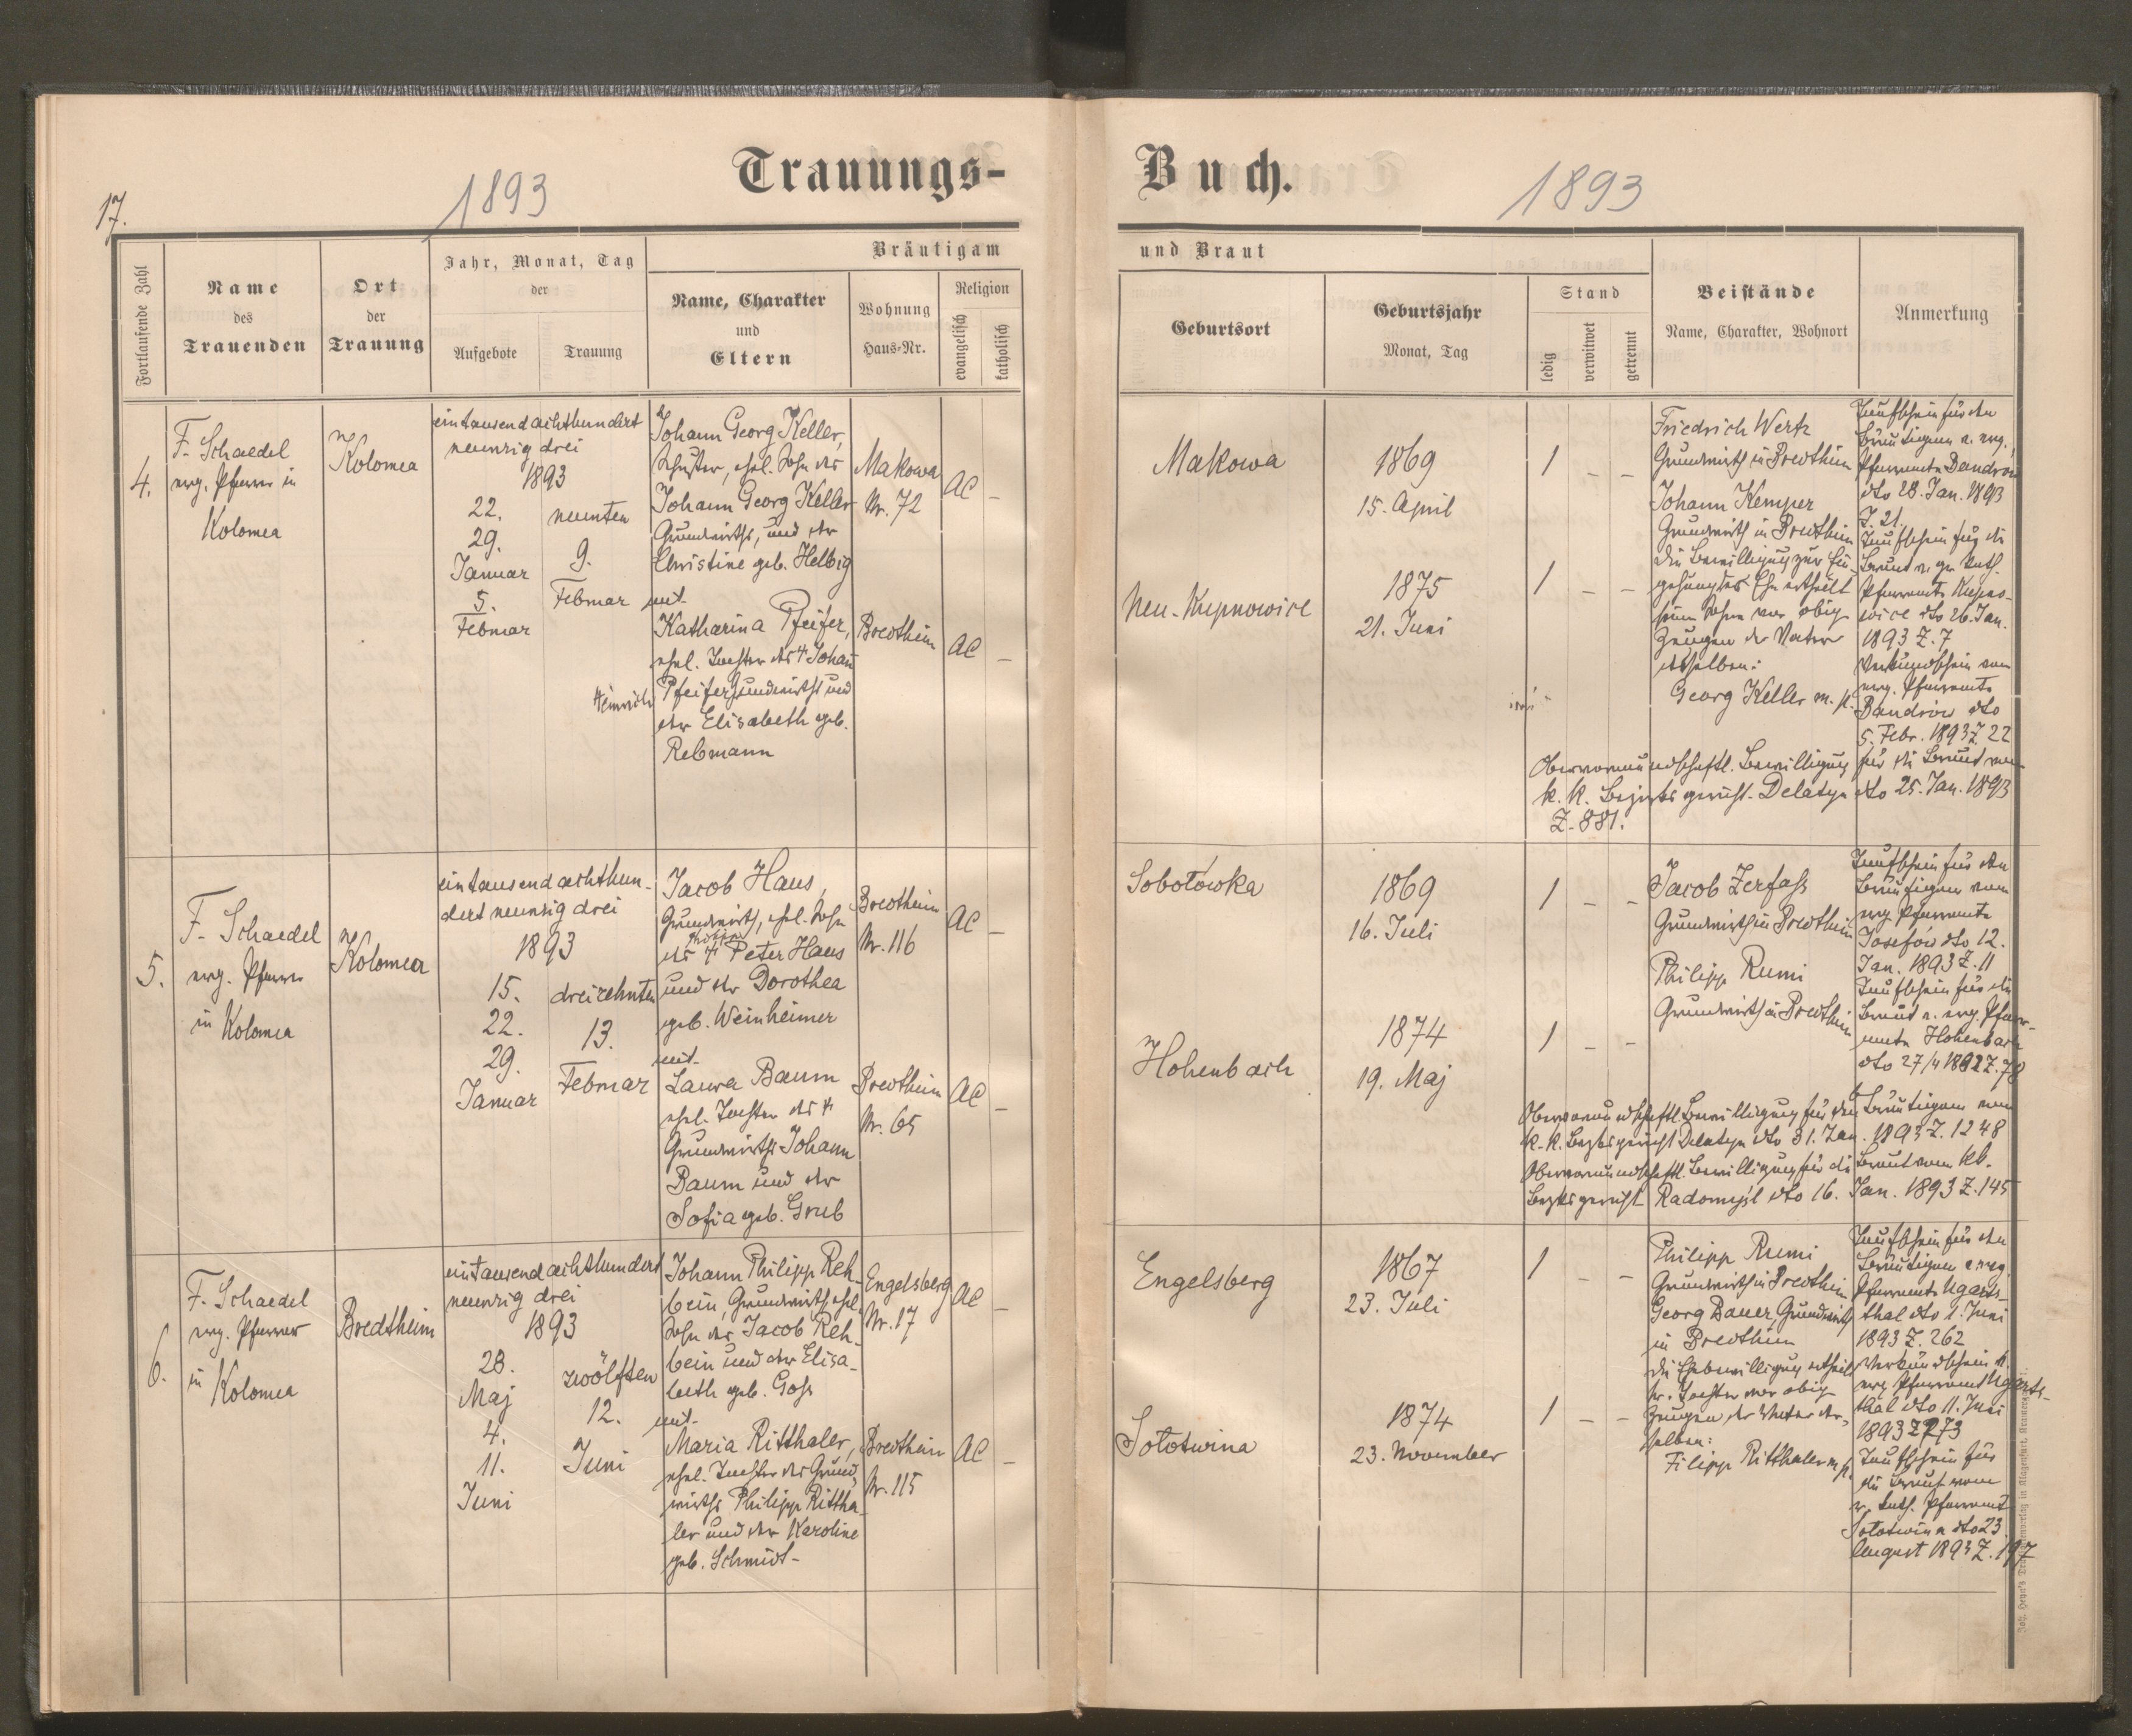 17.
1893
Trauungs-
Fortlaufende Zahl
Name
des
Trauenden
Ort
der
Trauung
Jahr, Monat, Tag
der
Aufgebote
Trauung
Bräutigam
Name, Charakter
und
Eltern
Wohnung
Haus-Nr.
Religion
evangelisch
katholisch
4.
F. Schaedel
evg. Pfarrer in
Kolomea
Kolomea
eintausend achthundert
neunzig drei
1893
22.
29.
Januar
5.
Februar
neunten
9.
Februar
Johann Georg Keller,
Schuster, ehel. Sohn des
Johann Georg Keller
Grundwirths, und der
Christine geb. Helbig
mit
Katharina Pfeifer,
ehel. Tochter des † Johann
Heinrich Pfeifer Grundwirths und
der Elisabeth geb.
Rebmann
Makowa
Nr. 72
Bredtheim
AC –
AC –
5.
F. Schaedel
evg. Pfarrer
in Kolomea
Kolomea
eintausend achthun-
dert neunzig drei
1893
15.
22.
29.
Januar
dreizehnten
13.
Februar
Jacob Haus,
Grundwirth, ehel. Sohn
des † Peter Haus
und der Dorothea
geb. Weinheimer
mit
Laura Baum
ehel. Tochter des †
Grundwirths Johann
Baum und der
Sofia geb. Grub
Bredtheim
Nr. 116
Bredtheim
Nr. 65
AC –
AC –
6.
F. Schaedel
evg. Pfarrer
in Kolomea
Bredtheim
eintausend achthundert
neunzig drei
1893
28.
Maj
4.
11.
Juni
zwölften
12.
Juni
Johann Philipp Reh-
bein, Grundwirth ehel.
Sohn des Jacob Reh-
bein und der Elisa-
beth geb. Goss
mit
Maria Ritthaler,
ehel. Tochter des Grund-
wirths Philipp Rittha-
ler und der Karoline
geb. Schmidt –
Engelsberg
Nr. 17
Bredtheim
Nr. 115
AC –
AC –
Buch.
1893
und Braut
Geburtsort
Geburtsjahr
Monat, Tag
Stand
ledig
verwitwet
getrennt
Beistände
Name, Charakter, Wohnort
Anmerkung
Makowa
1869
15. April
/ – –
Neu-Kupnowice
1875
21. Juni
/ – –
Friedrich Wertz
Grundwirth in Bredtheim
Johann Kemper
Grundwirth in Bredtheim
Die Bewilligung zur Ein-
gehung der Ehe ertheilt
seinem Sohne vor obig.
Zeugen der Vater
desselben:
Georg Keller m. p.
Taufschein für den
Bräutigam v. evg.
Pfarramte Bandrow
dto 28. Jan. 1893
Z. 21.
Taufschein für die
Braut v. gr. kath.
Pfarramte Kupno-
wice dto 26. Jan.
1893 Z. 7
Verkündschein vom
evg. Pfarramte
Bandrów dto
5. Febr. 1893 Z 22
Obervormundschaftl. Bewilligung für die Braut vom
k. k. Bezirksgericht Delatyn dto 25. Jan. 1893
Z. 881.
Sobotówka
1869
16. Juli
/ – –
Hohenbach
1874
19. Maj
/ – –
Jacob Zerfass
Grundwirth in Bredtheim
Philipp Rumi
Grundwirth in Bredtheim
Taufschein für den
Bräutigam vom
evg. Pfarramte
Josefów dto 12.
Jan. 1893 Z. 11
Taufschein für die
Braut v. evg. Pfarr-
amte Hohenbach
dto 27/4 1892 Z. 78
Obervormundschaftl. Bewilligung für den Bräutigam vom
k. k. Bezksgericht Delatyn dto 31. Jan. 1893 Z. 1248
Obervormundschaftl. Bewilligung für die Braut vom kk.
Bezksgericht Radomyśl dto 16. Jan. 1893 Z. 145
Engelsberg
1867
23. Juli
/ – –
Sototwina
1874
23. November
/ – –
Philipp Rumi
Grundwirth in Bredtheim
Georg Bauer, Grundwirth
in Bredtheim
Die Ehebewilligung ertheilt
sr. Tochter vor obig.
Zeugen der Vater der-
selben:
Filipp Ritthaler m p.
Taufschein für den
Bräutigam v. evg.
Pfarramte Ugarts-
thal dto 1. Juni
1893 Z. 262
Verkündschein v.
evg. Pfarramt Ugarts-
thal dto 11. Juni
1893 Z 273
Taufschein für
die Braut vom
r. kath. Pfarramt
Sototwina dto 23.
August 1893 Z. 197